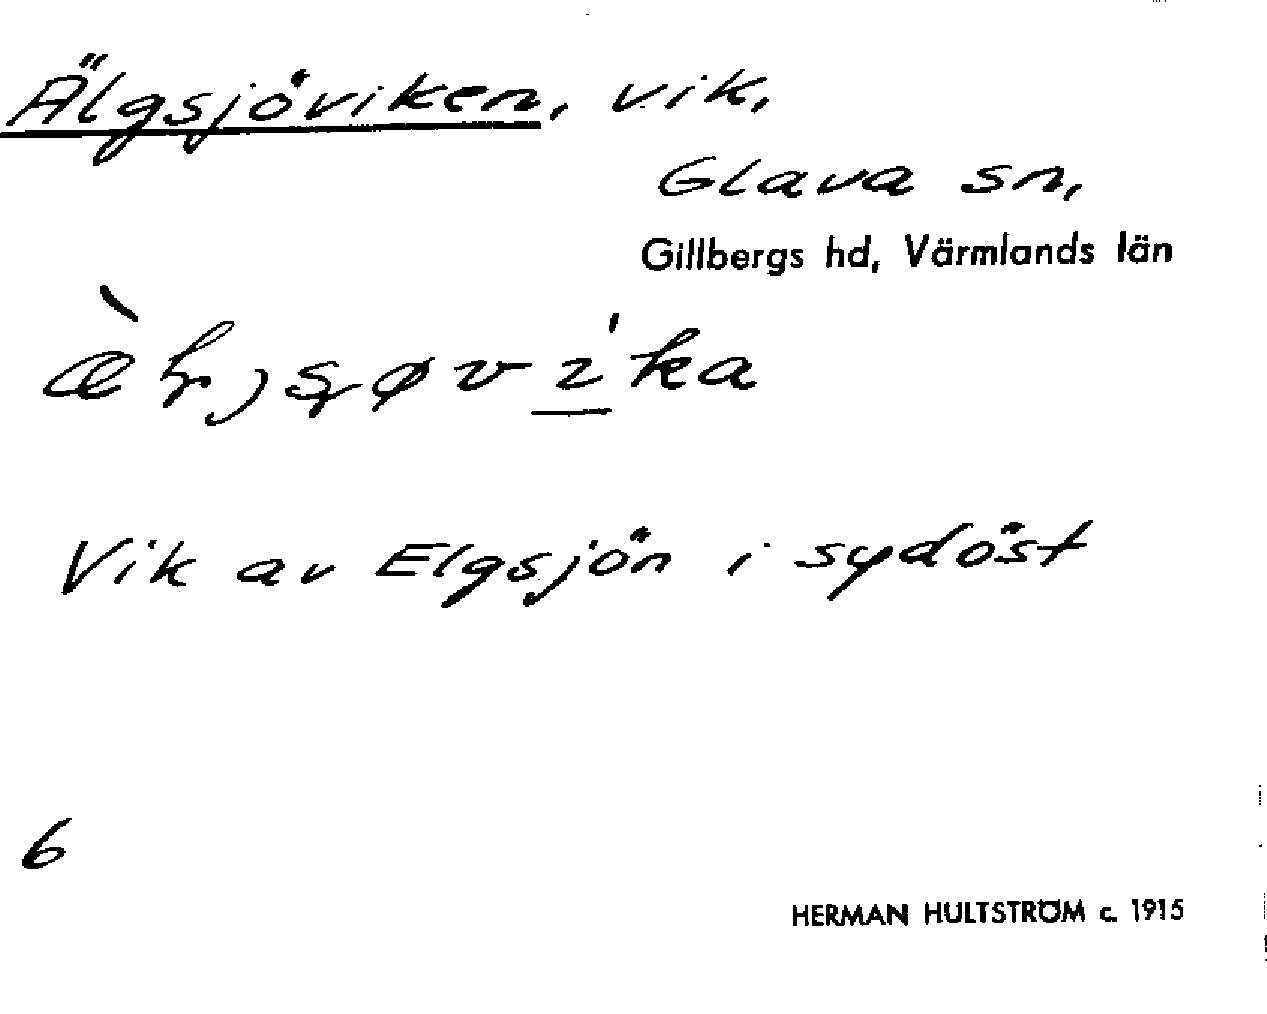 Älgsjöviken, vik,
Glava sn,
Gillbergs hd, Värmlands län
Vik av Elgsjön i sydöst
6
HERMAN HULTSTRÖM c. 1915